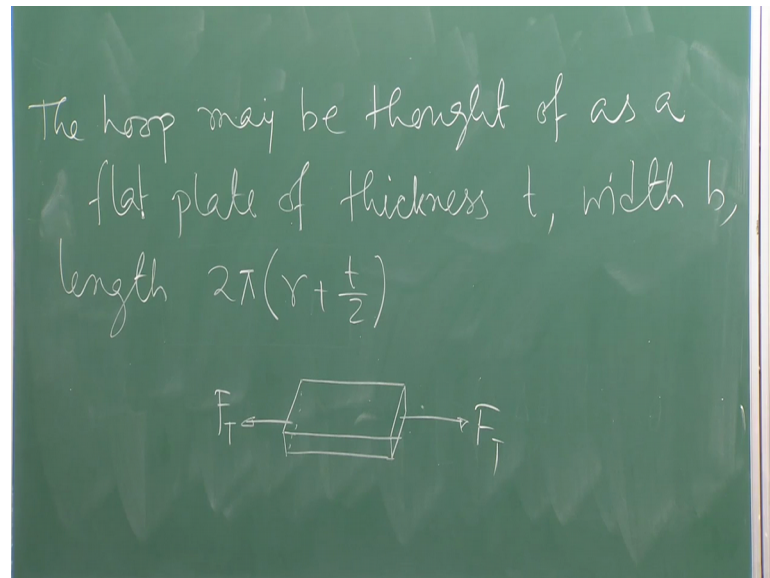 The hoop may be thought of as a
flat plate of thickness t, width b,
length 2π(r + t/2)
F_T F_T